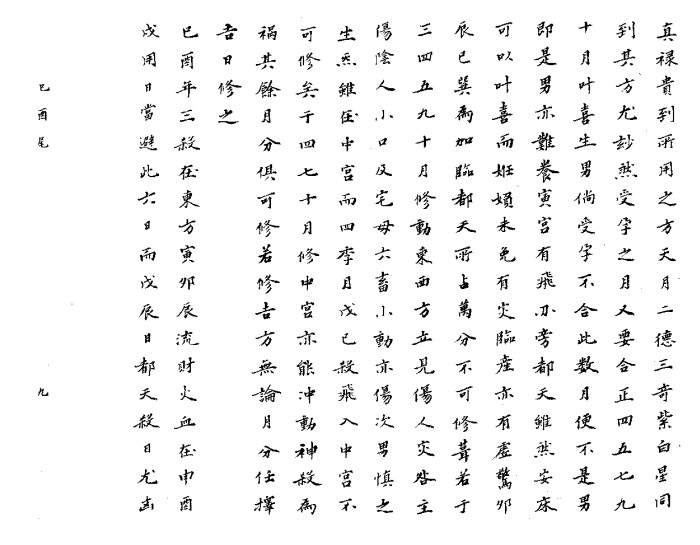 真禄貴到所用之方天月二德三奇紫白星同
到其方尤玅然受孕之月又要合正四五七九
十月叶喜生男倘受孕不合此数月便不是男
即是男亦難養寅宫有飛刃旁都天雖然安床
可以叶喜而姙娠未免有災臨産亦有虚驚夘
辰巳巽為加臨都天所占萬分不可修葺若于
三四五九十月修動東西方立見傷人災咎主
傷陰人小口及宅母六畜小動亦傷次男慎之
生炁雖在中宫而四季月戊巳殺飛入中宫不
可修矣于四七十月修中宫亦能冲動神殺為
禍其餘月分俱可修若修吉方無論月分任擇
吉日修之
巳酉年三殺在東方寅夘辰流財火血在申酉
戌用日當避此六日而戊辰日都天殺日尤凶
巳酉尾
九